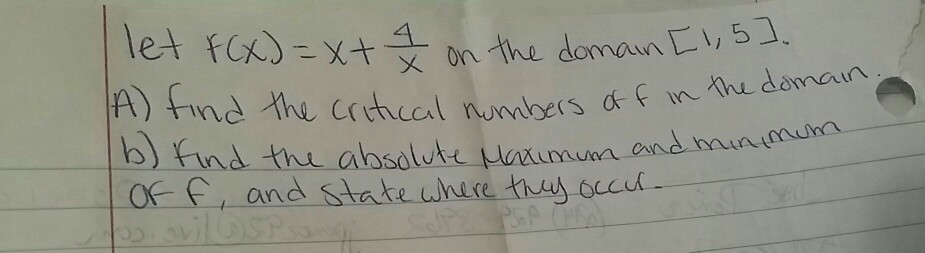 let f(x) = x + 4/x on the domain [1, 5].
A) find the critical numbers of f in the domain.
b) find the absolute Maximum and minimum
of f, and state where they occur.